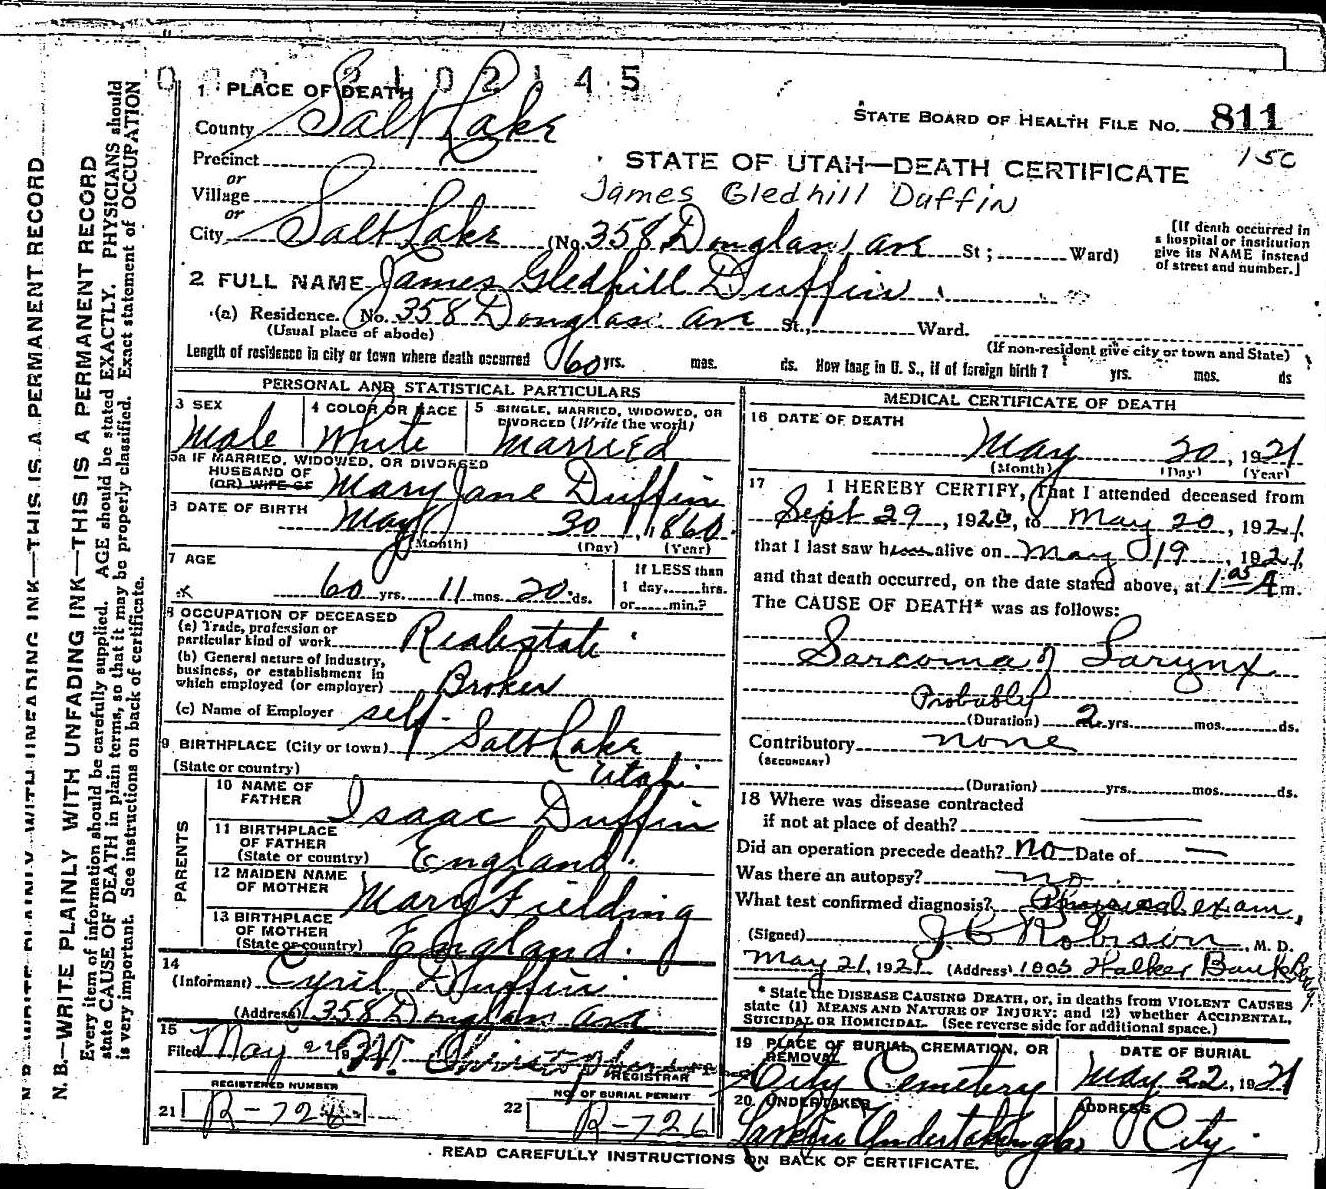 0 0 0 2 1 0 2 1 4 5
1 PLACE OF DEATH
County Salt Lake
STATE BOARD OF HEALTH FILE NO. 811
150
Precinct
or
Village
or
STATE OF UTAH—DEATH CERTIFICATE
James Gledhill Duffin
City Salt Lake (No. 358 Douglas Ave St; Ward)
[If death occurred in
a hospital or institution
give its NAME instead
of street and number.]
2 FULL NAME James Gledhill Duffin
(a) Residence. No. 358 Douglas Ave St., Ward.
(Usual place of abode)
(If non-resident give city or town and State)
Length of residence in city or town where death occurred 60 yrs. mos. ds. How long in U. S., if of foreign birth? yrs. mos. ds
PERSONAL AND STATISTICAL PARTICULARS
3 SEX
Male
4 COLOR OR RACE
White
5 SINGLE, MARRIED, WIDOWED, OR
DIVORCED (Write the word)
Married
5a IF MARRIED, WIDOWED, OR DIVORCED
HUSBAND OF
(OR) WIFE OF Mary Jane Duffin
6 DATE OF BIRTH
May 30, 1860
(Month) (Day) (Year)
7 AGE
60 yrs. 11 mos. 20 ds.
If LESS than
1 day, hrs.
or min.?
8 OCCUPATION OF DECEASED
(a) Trade, profession or
particular kind of work Realestate
(b) General nature of Industry,
business, or establishment in
which employed (or employer) Broker
(c) Name of Employer self.
9 BIRTHPLACE (City or town) Salt Lake
(State or country) Utah
PARENTS
10 NAME OF
FATHER Isaac Duffin
11 BIRTHPLACE
OF FATHER
(State or country) England.
12 MAIDEN NAME
OF MOTHER Mary Fielding
13 BIRTHPLACE
OF MOTHER
(State or country) England.
14
(Informant) Cyril Duffin
(Address) 358 Douglas Ave
15
Filed May 22 REGISTRAR
REGISTERED NUMBER
21 R-726
NO. OF BURIAL PERMIT
22 R-726
MEDICAL CERTIFICATE OF DEATH
16 DATE OF DEATH
May 20, 1921
(Month) (Day) (Year)
17 I HEREBY CERTIFY, That I attended deceased from
Sept 29, 1920, to May 20, 1921
that I last saw h alive on May 19 1921
and that death occurred, on the date stated above, at 1 05 A m.
The CAUSE OF DEATH* was as follows:
Sarcoma of Larynx
Probably
(Duration) 2 yrs. mos. ds.
Contributory none
(SECONDARY)
(Duration) yrs. mos. ds.
18 Where was disease contracted
if not at place of death? —
Did an operation precede death? no Date of —
Was there an autopsy? no
What test confirmed diagnosis? Physical exam,
(Signed) J C Robison M. D.
May 21, 1921 (Address) 1005 Walker Bank Bldg.
* State the DISEASE CAUSING DEATH, or, in deaths from VIOLENT CAUSES
state (1) MEANS AND NATURE OF INJURY; and (2) whether ACCIDENTAL,
SUICIDAL OR HOMICIDAL. (See reverse side for additional space.)
19 PLACE OF BURIAL, CREMATION, OR
REMOVAL
City Cemetery
DATE OF BURIAL
May 22, 1921
20 UNDERTAKER
ADDRESS
City
READ CAREFULLY INSTRUCTIONS ON BACK OF CERTIFICATE.
N. B.—WRITE PLAINLY WITH UNFADING INK—THIS IS A PERMANENT RECORD
N. B.—WRITE PLAINLY WITH UNFADING INK—THIS IS A PERMANENT RECORD
Every item of information should be carefully supplied. AGE should be stated EXACTLY. PHYSICIANS should
state CAUSE OF DEATH in plain terms, so that it may be properly classified. Exact statement of OCCUPATION
is very important. See instructions on back of certificate.